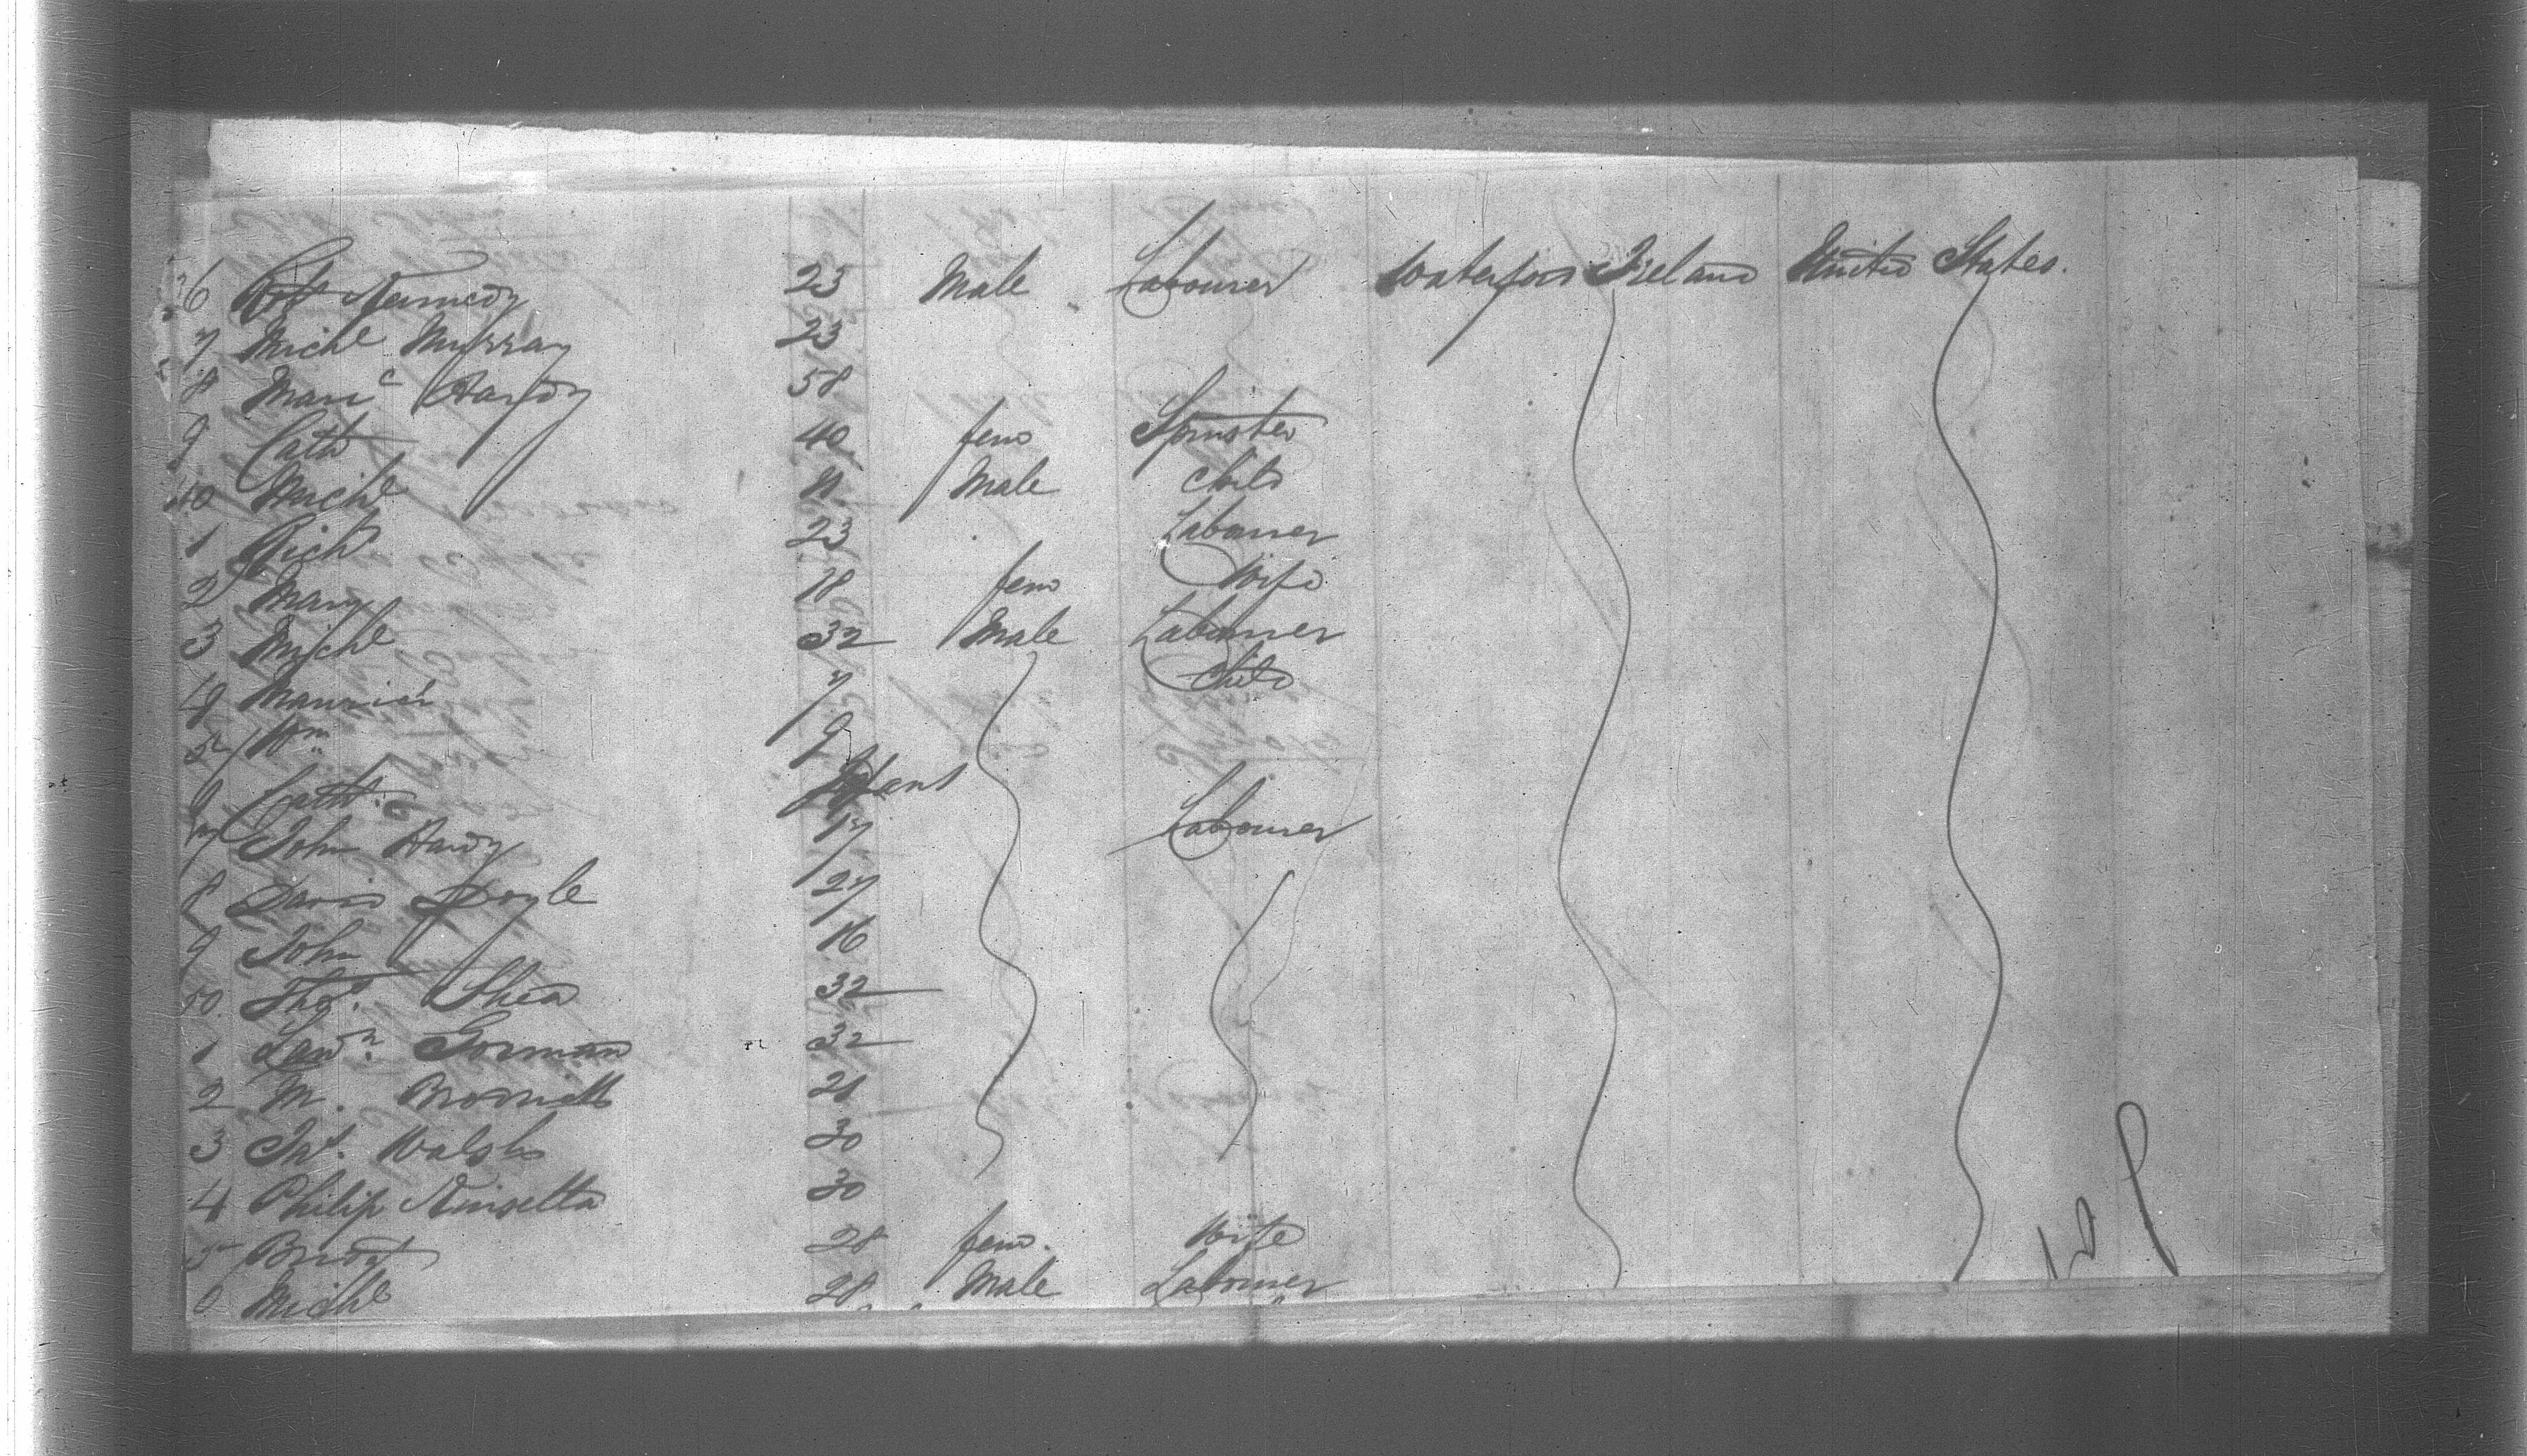 36 Robt Kennedy 23 Male Labourer Waterford Ireland United States.
7 Michl Murray 23
8 Mauc Hardy 58
9 Cath 40 fem Spinster
40 Michl 11 Male Child
1 Richd 23 Labourer
2 Mary 18 fem Wife
3 Michl 32 Male Labourer
4 Maurice 7 Child
5 Wm 9
6 Cath. Infant
7 John Hardy 17 Labourer
8 David Doyle 27
9 John 16
50. Thos. Shea 32
1 Lawn. Gorman 32
2 M. 21
3 Pat. Walsh 30
4 Philip Kinsella 30
5 Bridgt 28 fem. Wife
6 Michl 28 Male Labourer
129